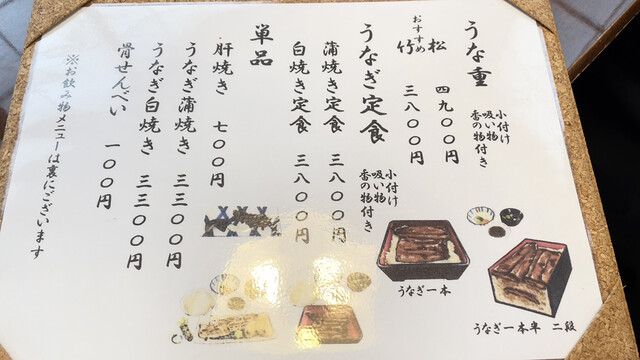 うな重
小付け
吸い物
香の物付き
松 四九〇〇円
おすすめ
竹 三八〇〇円
うなぎ定食
小付け
吸い物
香の物付き
蒲焼き定食 三八〇〇円
白焼き定食 三八〇〇円
単品
肝焼き 七〇〇円
うなぎ蒲焼き 三三〇〇円
うなぎ白焼き 三三〇〇円
骨せんべい 一〇〇円
※お飲み物メニューは裏にございます
うなぎ一本
うなぎ一本半 二段